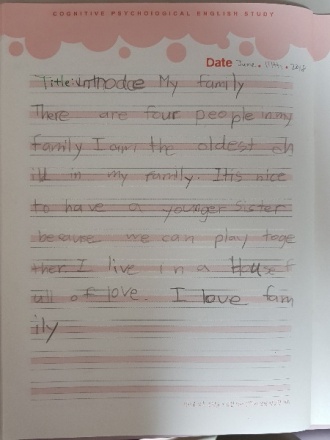 COGNITIVE PSYCHOLOGICAL ENGLISH STUDY
Date June. 04th.
Title: Introdce My family
There are four people in my
family I am the oldest ch
ild in my family. It is nice
to have a younger sister
because we can play toge
ther. I live in a House f
ull of love. I love fam
ily